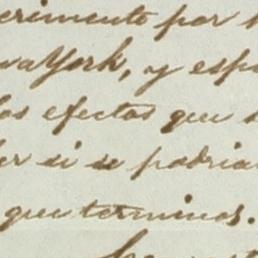 erimento por
vaYork, y esp
los efectos que
er si se podria
que terminos.